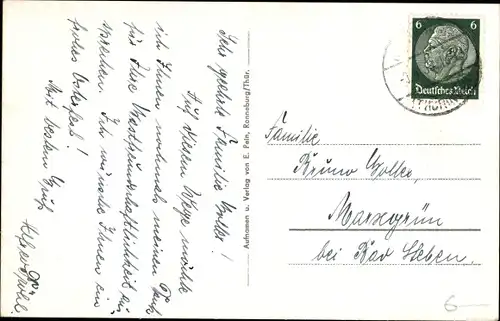 Sehr geehrte Familie Wolter!
Auf diesem Wege möchte
ich Ihnen nochmals meinen Dank
für Ihre Gastfreundschaftlichkeit aus
sprechen. Ich wünsche Ihnen ein
frohes Osterfest!
Mit besten Gruß
Aufnamen u. Verlag von E. Pein, Ronneburg/Thür.
6 6
Deutsches Reich
Familie
Bruno Wolter,
Marxgrün
bei Bad Steben.
6